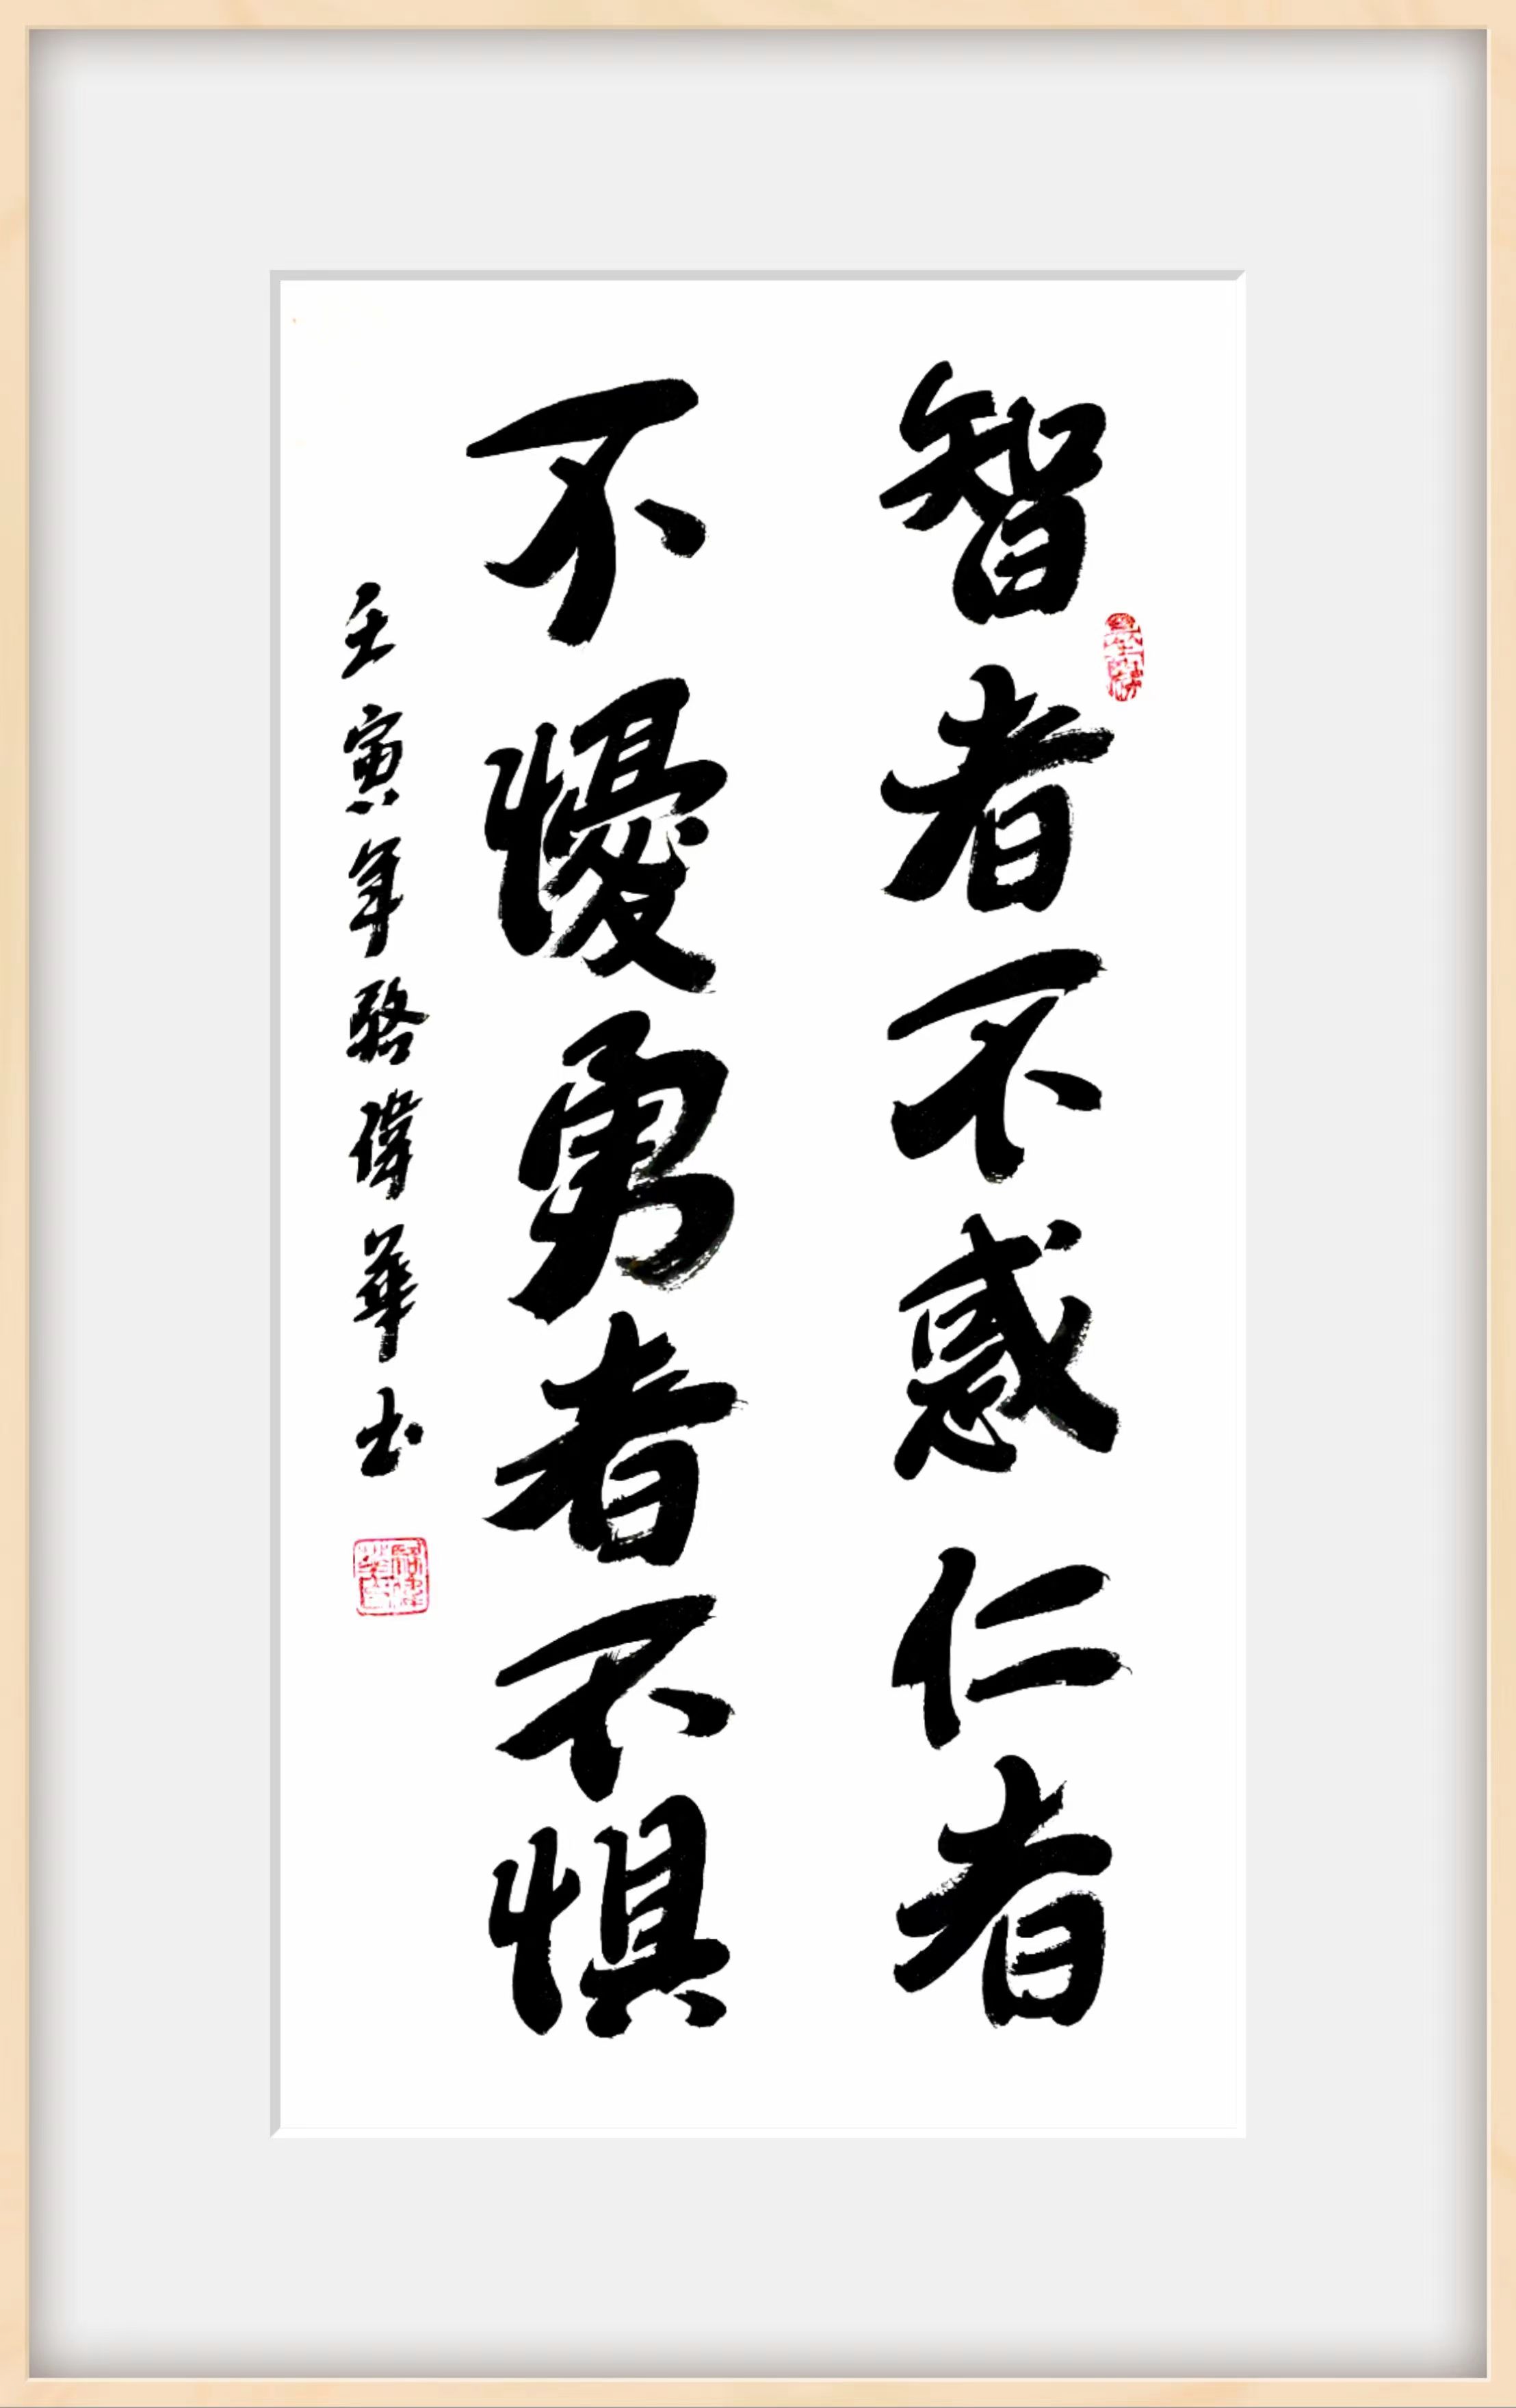 智者不惑仁者
不懮勇者不惧
壬寅年偉華书